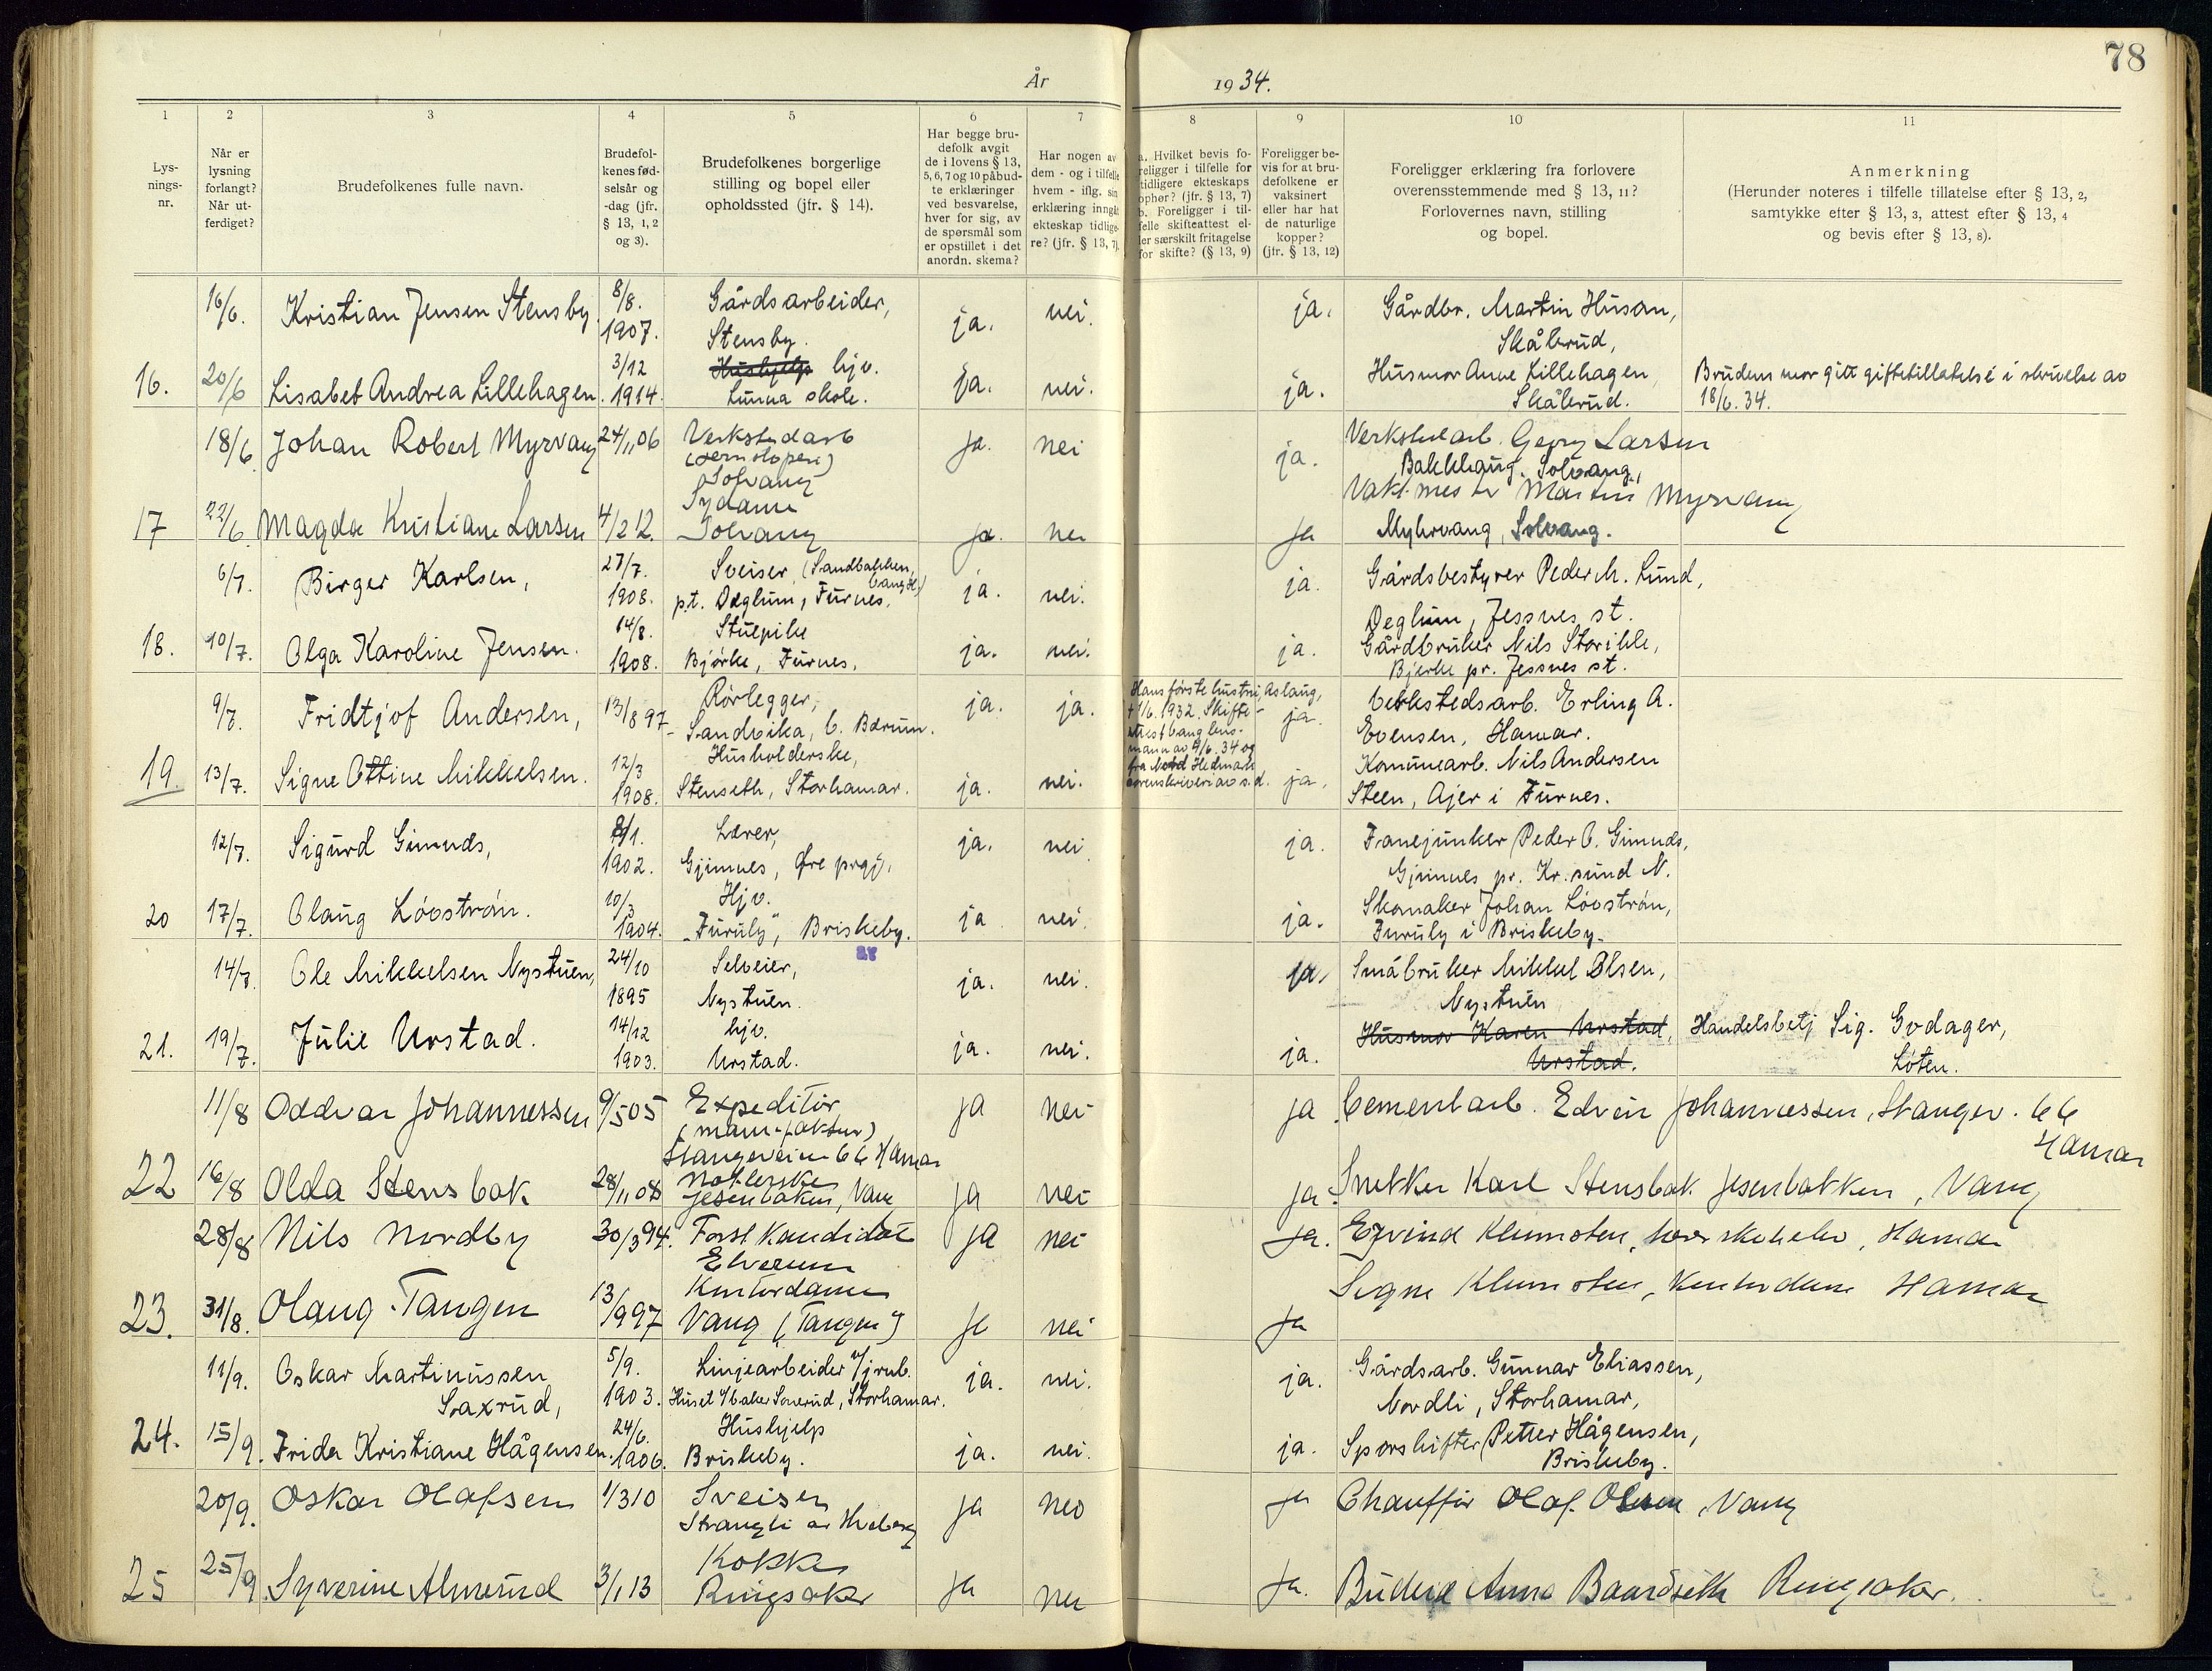 78
År 1934.
1 2 3 4 5 6 7 8 9 10 11
Lys-
nings-
nr.
Når er
lysning
forlangt?
Når ut-
ferdiget?
Brudefolkenes fulle navn.
Brudefol-
kenes fød-
selsår og
-dag (jfr.
§ 13, 1, 2
og 3).
Brudefolkenes borgerlige
stilling og bopel eller
opholdssted (jfr. § 14).
Har begge bru-
defolk avgit
de i lovens § 13,
5, 6, 7 og 10 påbud-
te erklæringer
ved besvarelse,
hver for sig, av
de spørsmål som
er opstillet i det
anordn. skema?
Har nogen av
dem - og i tilfelle
hvem - iflg. sin
erklæring inngåt
ekteskap tidlige-
re? (jfr. § 13, 7).
a. Hvilket bevis fo-
religger i tilfelle for
tidligere ekteskaps
ophør? (jfr. § 13, 7)
b. Foreligger i til-
felle skifteattest el-
ler særskilt fritagelse
for skifte? (§ 13, 9)
Foreligger be-
vis for at bru-
defolkene er
vaksinert
eller har hat
de naturlige
kopper?
(jfr. § 13, 12)
Foreligger erklæring fra forlovere
overensstemmende med § 13, 11?
Forlovernes navn, stilling
og bopel.
Anmerkning
(Herunder noteres i tilfelle tillatelse efter § 13, 2,
samtykke efter § 13, 3, attest efter § 13, 4
og bevis efter § 13, 8).
16/6. Kristian Jensen Stensby. 8/8. 1907. Gårdsarbeider, ja. nei. ja. Gårdbr. Martin Huson,
Stensby. Skålerud,
16. 20/6 Lisabet Andrea Lillehagen. 3/12 1914. Hushjelp hjv. ja. nei. ja. Husmor Anne Lillehagen, Brudens mor gitt giftetillatelse i skrivelse av
Lunna skole. Skålerud. 18/6. 34.
18/6 Johan Robert Myrvang 24/11 06 Verkstedarb ja. nei ja. Verkstedarb. Georg Larsen
Solvang Bakkhaug. Solvang,
Sydame Vaktmester Martin Myrvang
17 22/6. Magda Kristiane Larsen 4/2 12. Solvang ja. nei ja Myhrvang, Solvang.
6/7. Birger Karlsen, 27/7. 1908. Sveiser (Sandbakken, Vang H.) ja. nei. ja. Gårdsbestyrer Peder M. Lund,
p.t. Deglum, Furnes. Deglum, Jessnes st.
18. 10/7. Olga Karoline Jensen. 14/8. 1908. Stuepike ja. nei. ja. Gårdbruker Nils Storihle,
Bjørke, Furnes. Bjerke pr. Jessnes st.
9/7. Fridtjof Andersen, 13/8 97 Rørlegger, ja. ja. Hans første hustru, Aslaug, ja. Verkstedsarb. Erling A.
Sandvika, V. Bærum. 1/6. 1932. Skifte- Evensen, Hamar.
attest Vang lens-
mann av 4/6. 34 og
19. 13/7. Signe Ottine Mikkelsen. 12/3 1908. Husholderske, ja. nei. fra Nord Hedmark ja. Kommunearb. Nils Andersen
Stenseth, Storhamar. sorenskriveri av s.d. Steen, Ajer i Furnes.
12/7. Sigurd Gimnes, 8/1. 1902. Lærer, ja. nei. ja. Fanejunker Peder O. Gimnes,
Gjimnes, Øre prgj. Gjimnes pr. Kr.sund N.
20 17/7. Olaug Lövström. 10/3 1904. Hjv. ja nei. ja. Skomaker Johan Lövström,
"Furuly", Briskeby. Furuly i Briskeby.
14/7. Ole Mikkelsen Nystuen, 24/10 1895 Selveier, ja. nei. ja. Småbruker Mikkel Olsen,
Nystuen. Nystuen
21. 19/7. Julie Urstad. 14/12 1903. hjv. ja. nei. ja. Husmor Karen Urstad, Handelsbetj. Sig. Godager,
Urstad. Urstad. Løten.
11/8 Oddvar Johannessen 9/5 05 Expeditør ja nei ja Cementarb. Edvin Johannessen, Stangev. 66
(manufaktur) Hamar
Stangeveien 66 Hamar
22 16/8 Olda Stensbak 28/11 08 ja nei ja. Snekker Karl Stensbak Jesenbakken, Vang
Jesenbakken, Vang
28/8 Nils Nordby 30/3 94. Forstkandidat ja nei ja. Eyvind Klumsten, Hamar
Elverum
23. 31/8. Olaug Tangen 13/9 97 Kontordame ja nei ja Signe Klumsten, Kontordame Hamar
Vang (Tangen)
11/9. Oskar Martinussen 5/9. 1903. Linjearbeider v/jrnb. ja. nei. ja. Gårdsarb. Gunnar Eliassen,
Saxrud, Huset Storhamar. Nordli, Storhamar,
24. 15/9. Frida Kristiane Hågensen. 24/6. 1906. Hushjelp ja. nei. ja. Sporskifter Petter Hågensen,
Briskeby. Briskeby.
20/9. Oskar Olafsen 1/3 10 Sveiser ja nei ja Chauffør Olaf Olsen, Vang
25 25/9. Syverine Almerud 3/1 13 Kokke ja nei ja. Budeie Anna Baardseth Ringsaker.
Ringsaker